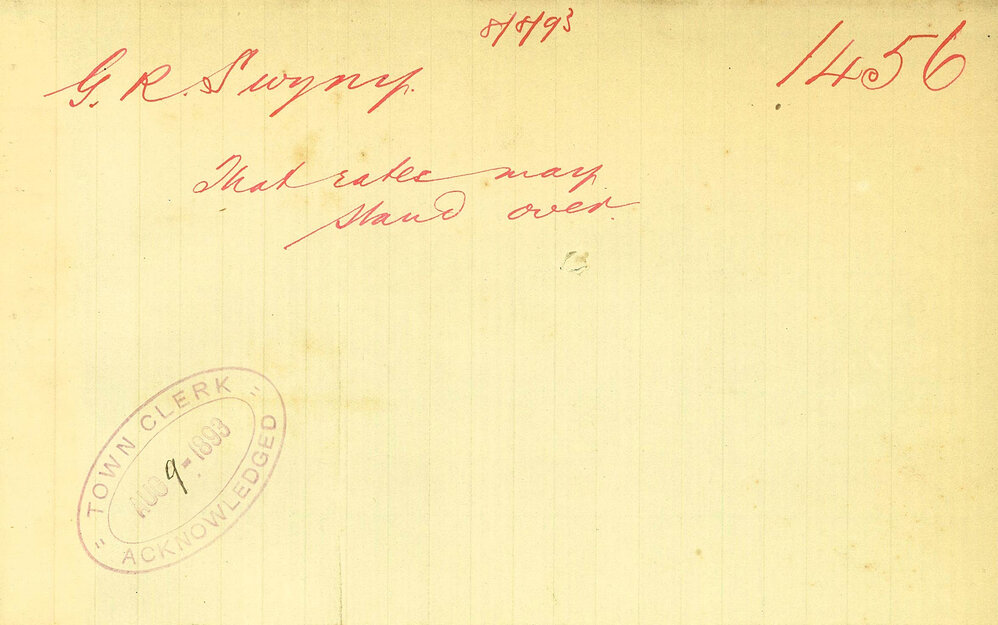 8/8/93
1456
G. R. Swyny.
That rates may
stand over.
" TOWN CLERK "
AUG 9 - 1893
ACKNOWLEDGED